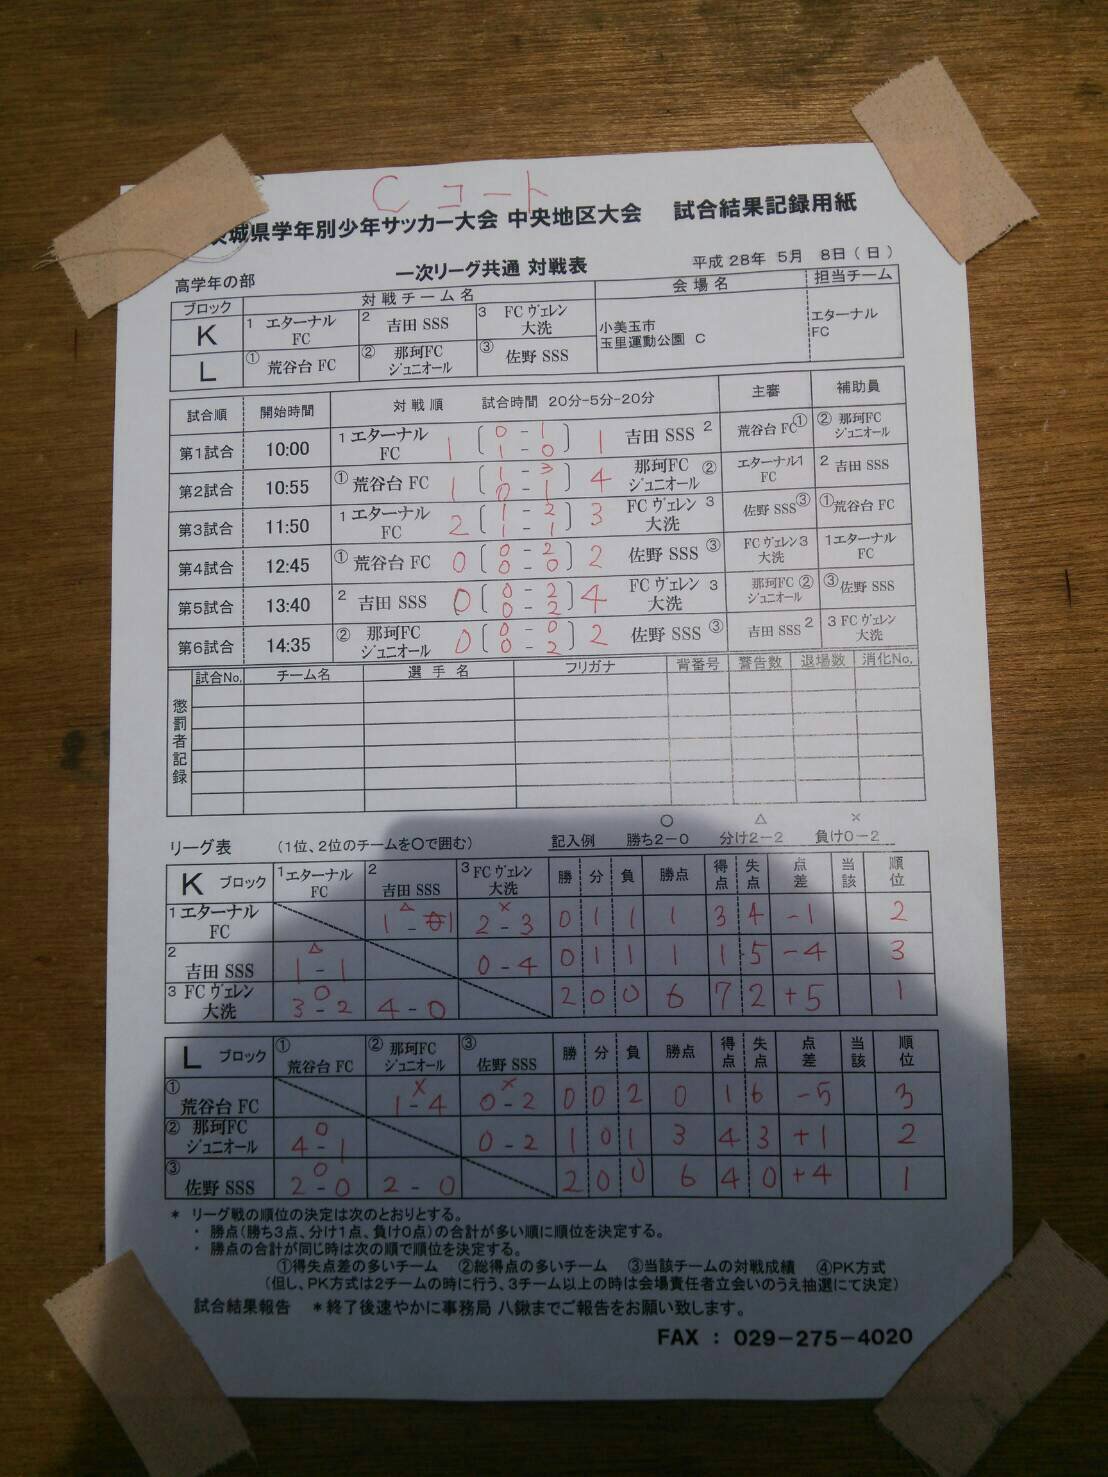 C コート
城県学年別少年サッカー大会 中央地区大会 試合結果記録用紙
高学年の部 一次リーグ共通 対戦表 平成 28年 5月 8日(日)
ブロック 対戦チーム名 会場名 担当チーム
K 1 エターナル FC 2 吉田 SSS 3 FC ヴェレン 大洗 小美玉市 玉里運動公園 C エターナル FC
L ① 荒谷台 FC ② 那珂FC ジュニオール ③ 佐野 SSS
試合順 開始時間 対戦順 試合時間 20分-5分-20分 主審 補助員
第1試合 10:00 1 エターナル FC 1 0 - 1 1 - 0 1 吉田 SSS 2 荒谷台 FC ① ② 那珂FC ジュニオール
第2試合 10:55 ① 荒谷台 FC 1 1 - 3 0 - 1 4 那珂FC ジュニオール ② エターナル1 FC 2 吉田 SSS
第3試合 11:50 1 エターナル FC 2 1 - 2 1 - 1 3 FC ヴェレン 大洗 3 佐野 SSS ③ ① 荒谷台 FC
第4試合 12:45 ① 荒谷台 FC 0 0 - 2 0 - 0 2 佐野 SSS ③ FC ヴェレン 3 大洗 1 エターナル FC
第5試合 13:40 2 吉田 SSS 0 0 - 2 0 - 2 4 FC ヴェレン 大洗 3 那珂FC ② ジュニオール ③ 佐野 SSS
第6試合 14:35 ② 那珂FC ジュニオール 0 0 - 0 0 - 2 2 佐野 SSS ③ 吉田 SSS 2 3 FC ヴェレン 大洗
懲罰者記録 試合No. チーム名 選手名 フリガナ 背番号 警告数 退場数 消化No.
○ △ ×
リーグ表 (1位、2位のチームを○で囲む) 記入例 勝ち2-0 分け2-2 負け0-2
K ブロック 1 エターナル FC 2 吉田 SSS 3 FC ヴェレン 大洗 勝 分 負 勝点 得点 失点 点差 当該 順位
1 エターナル FC △ 1 - 1 × 2 - 3 0 1 1 1 3 4 -1 2
2 吉田 SSS △ 1 - 1 0 - 4 0 1 1 1 1 5 -4 3
3 FC ヴェレン 大洗 ○ 3 - 2 4 - 0 2 0 0 6 7 2 +5 1
L ブロック ① 荒谷台 FC ② 那珂FC ジュニオール ③ 佐野 SSS 勝 分 負 勝点 得点 失点 点差 当該 順位
① 荒谷台 FC × 1 - 4 × 0 - 2 0 0 2 0 1 6 -5 3
② 那珂FC ジュニオール ○ 4 - 1 0 - 2 1 0 1 3 4 3 +1 2
③ 佐野 SSS ○ 2 - 0 2 - 0 2 0 0 6 4 0 +4 1
* リーグ戦の順位の決定は次のとおりとする。
・ 勝点(勝ち3点、分け1点、負け0点)の合計が多い順に順位を決定する。
・ 勝点の合計が同じ時は次の順で順位を決定する。
①得失点差の多いチーム ②総得点の多いチーム ③当該チームの対戦成績 ④PK方式
(但し、PK方式は2チームの時に行う、3チーム以上の時は会場責任者立会いのうえ抽選にて決定)
試合結果報告 *終了後速やかに事務局 八鍬までご報告をお願い致します。
FAX : 029-275-4020